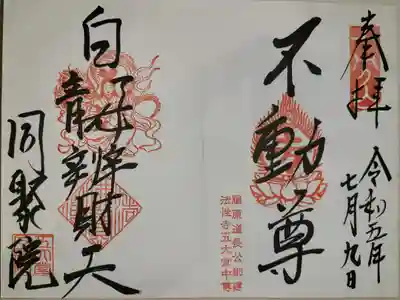 奉拝
令和五年
七月九日
不動尊
藤原道長公創建
法性寺五大堂中尊
辨財天
同聚院